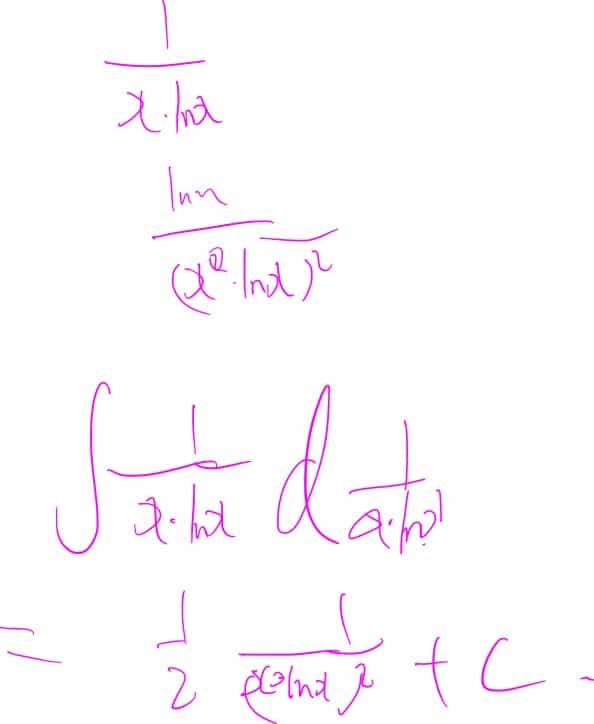 1/(x·lnx)
lnx/(x²·lnx)²
∫ 1/(x·lnx) d 1/(x·lnx)
= 1/2 1/(x·lnx)² + C